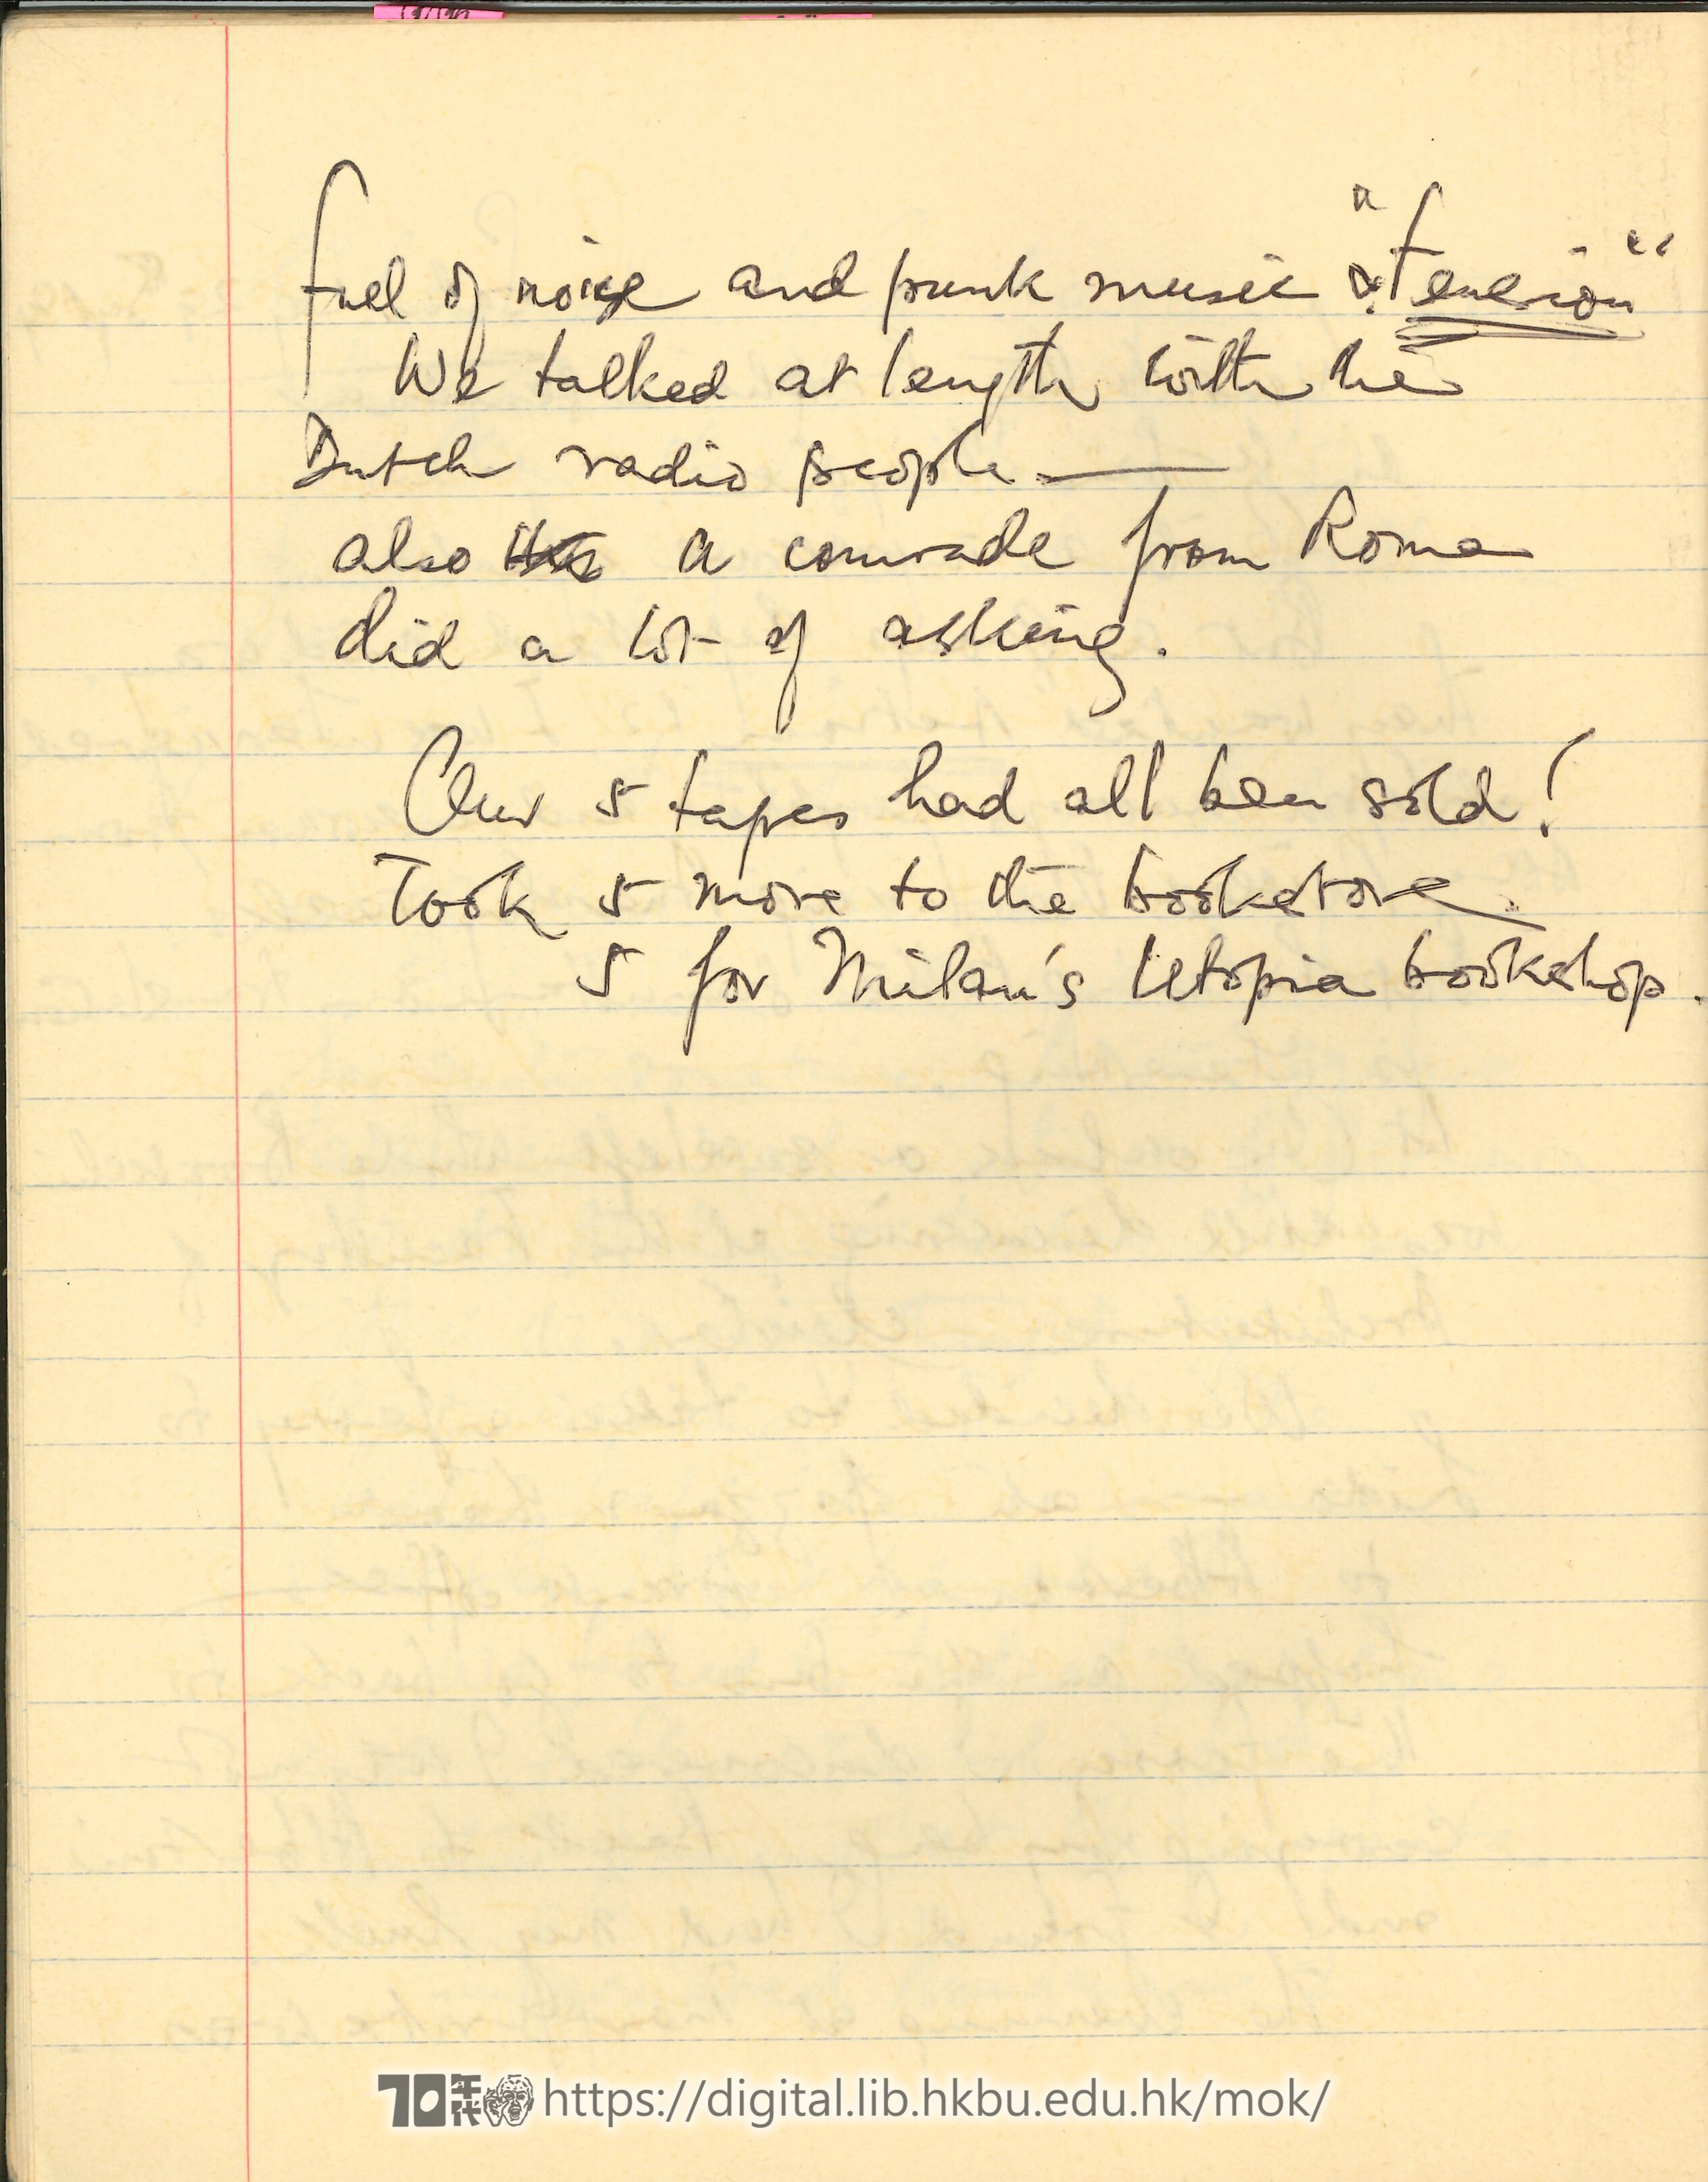 fuel of noise and punk music & "Tension"
We talked at length with the
Dutch radio people —
also a comrade from Rome
did a lot of asking.
Our 5 tapes had all been sold!
Took 5 more to the bookstore.
5 for Milan's Utopia bookshop.
70年代 https://digital.lib.hkbu.edu.hk/mok/